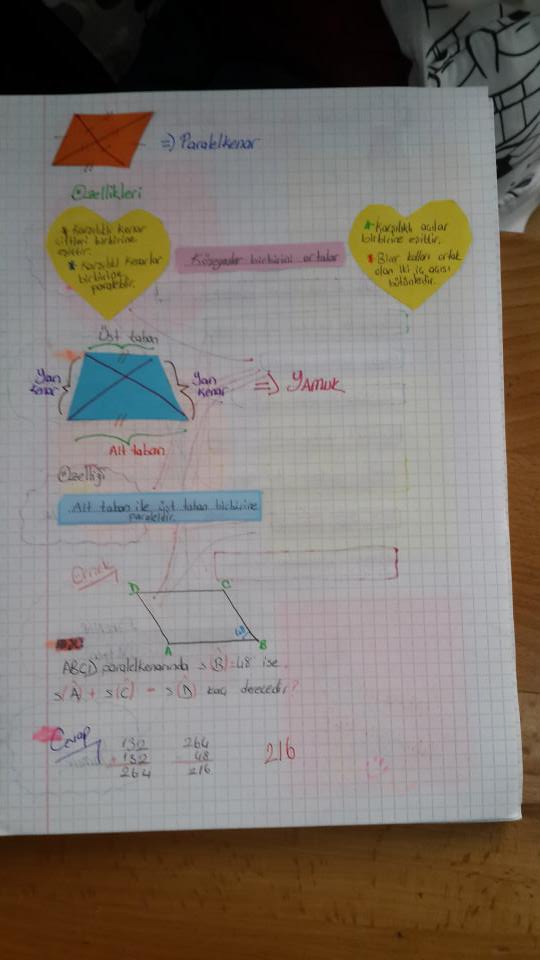 =) Paralelkenar
Özellikleri
* Karşılıklı kenar
çiftleri birbirine
eşittir.
* Karşılıklı kenarlar
birbirine
paraleldir.
Köşegenler birbirini ortalar
* Karşılıklı açılar
birbirine eşittir.
* Birer kolları ortak
olan iki iç açısı
bütünlerdir.
Üst taban
Yan
kenar
Yan
kenar
=) YAMUK
Alt taban
Özelliği
Alt taban ile üst taban birbirine
paraleldir.
Örnek
D
C
A
B
48
ABCD paralelkenarında s(B)=48 ise
s(A) + s(C) - s(D) kaç derecedir?
Cevap
132
+ 132
264
264
48
216
216